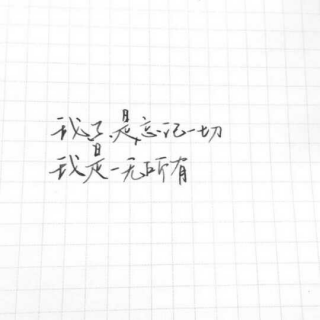 我不是忘记一切
我是一无所有